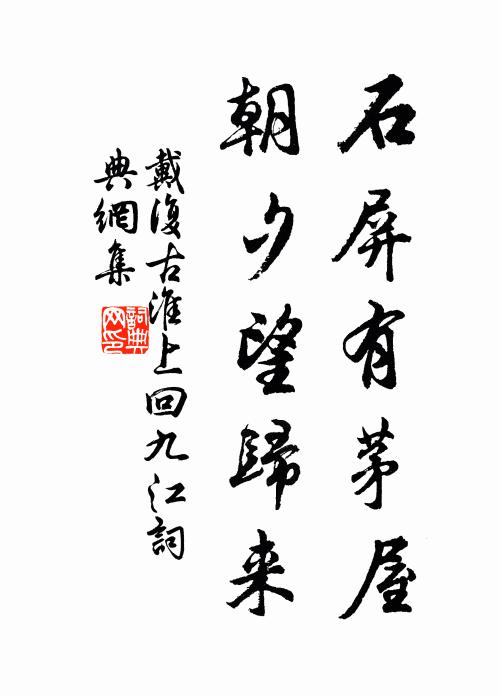 石屏有茅屋
朝夕望歸来
戴復古淮上回九江詞
典網集
詞典
网印